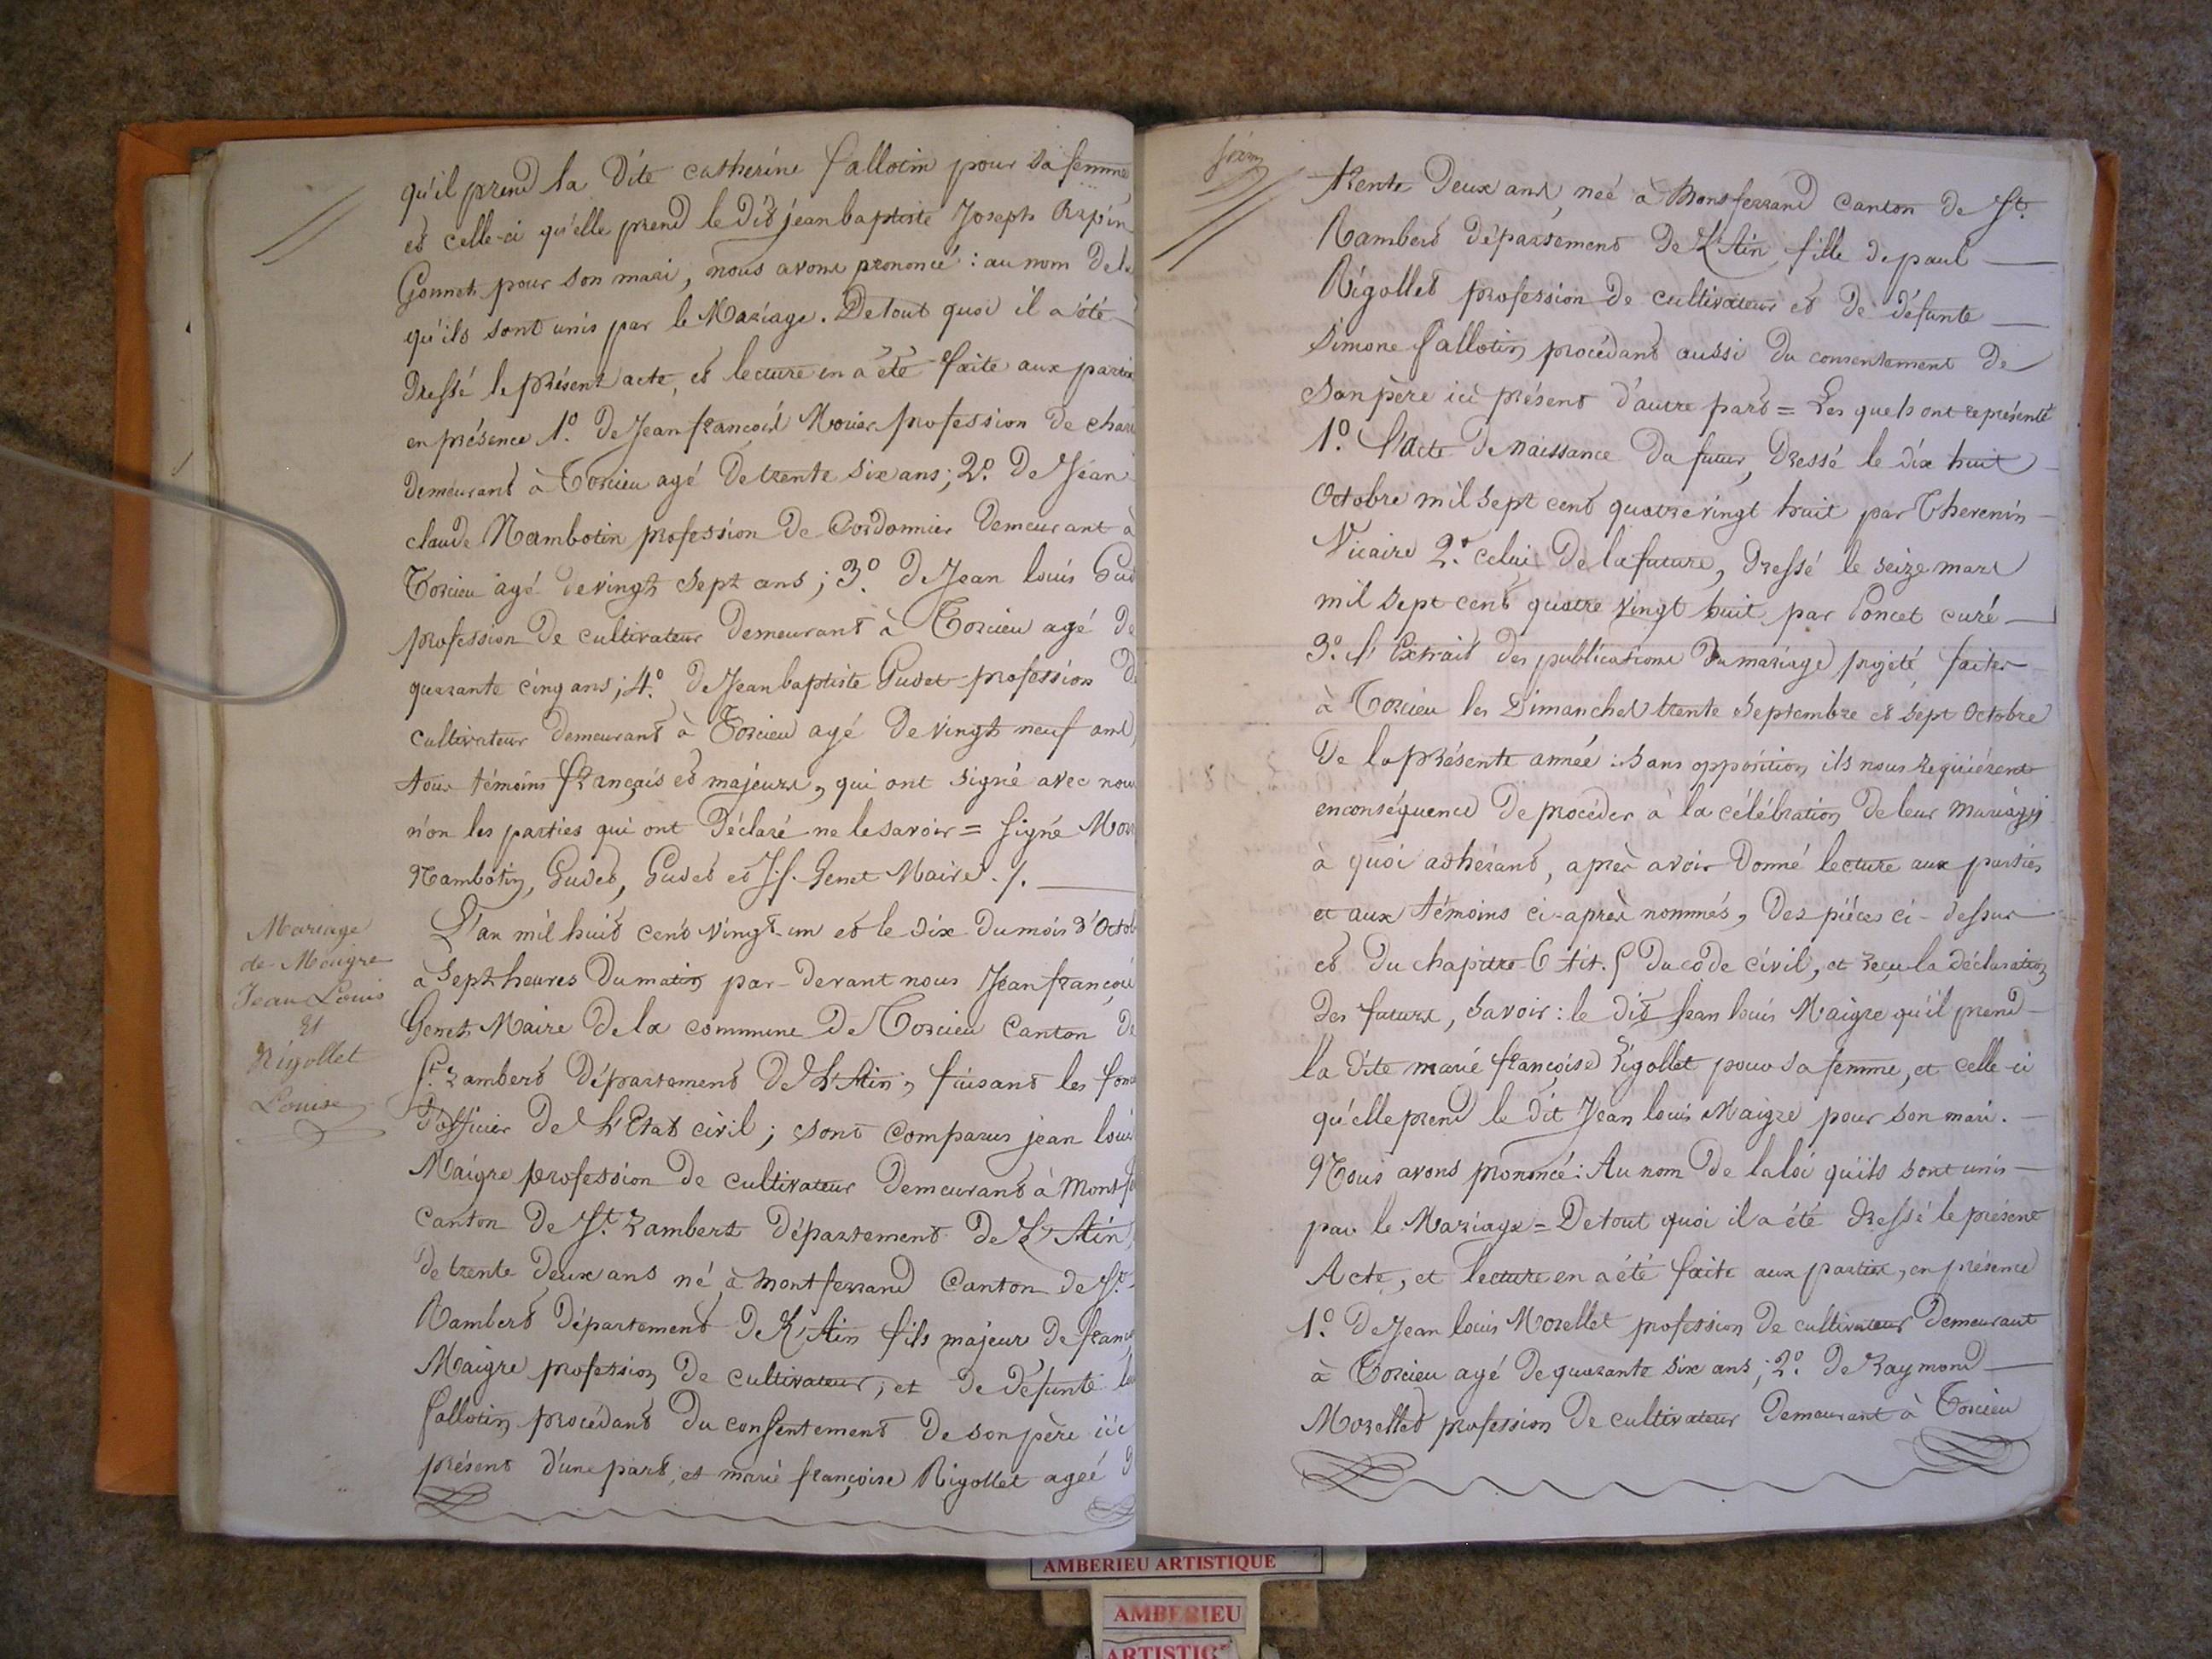 qu'il prend la dite catherine fallotin pour sa femme
et celle-ci qu'elle prend le dit jean baptiste Joseph Orpin
Gonnet pour son mari, nous avons prononcé : au nom de la
qu'ils sont unis par le Mariage. De tout quoi il a été
dressé le présent acte, et lecture en a été faite aux parties
en présence 1.º de Jean françois Morier profession de char
demeurant à Torcieu agé de trente six ans ; 2.º de Jean
claude Nambotin profession de Cordonnier demeurant à
Torcieu agé de vingt sept ans ; 3.º de Jean louis Gud
profession de cultivateur demeurant à Torcieu agé de
quarante cinq ans ; 4.º de Jean baptiste Gudet profession d
cultivateur demeurant à Torcieu agé de vingt neuf ans,
tous témoins français et majeurs, qui ont signé avec nous
non les parties qui ont déclaré ne le savoir = signé Mor
Nambotin, Gudet, Gudet et J. f. Genet Maire ./.
Mariage
de Maigre
Jean Louis
Et
Rigollet
Louise
L'an mil huit cent vingt-un et le dix du mois d'Octob
à sept heures du matin par-devant nous Jean françois
Genet Maire de la commune de Torcieu Canton de
St. Rambert Département de L'Ain, faisant les fonc
d'officier de L'Etat civil ; sont comparus jean louis
Maigre profession de cultivateur demeurant à Montf
canton de St. Rambert département de L'Ain,
de trente deux ans né à montferrand Canton de St.
Rambert Département de L'Ain fils majeur de franç
Maigre profession de cultivateur, et de défunte lou
fallotin procédant du consentement de son père ici
présent d'une part, et marie françoise Rigollet ageé d
trente deux ans, neé à Montferrand Canton de St.
Rambert département de L'Ain, fille de paul
Rigollet profession de cultivateur et de défunte
simone fallotin procédant aussi du consentement de
son père ici présent d'autre part = Les quels ont représenté
1.º L'acte de naissance du futur, dressé le dix huit
Octobre mil sept cent quatre vingt huit par Therenin
Vicaire 2.º celui de la future, dressé le seize mars
mil sept cent quatre vingt huit par Poncet curé
3.º l'Extrait des publications du mariage projeté, faites
à Torcieu les Dimanches trente septembre et sept Octobre
de la présente année : sans opposition ils nous requièrent
en conséquence de procéder à la célébration de leur mariage
à quoi adhérant, après avoir donné lecture aux parties
et aux témoins ci-après nommés, des piéces ci-dessus
et du chapitre 6 tit. 5 du code civil, et reçu la déclaration
des futurs, savoir : le dit Jean louis Maigre qu'il prend
la dite marie françoise Rigollet pour sa femme, et celle-ci
qu'elle prend le dit Jean louis Maigre pour son mari.
Nous avons prononcé : Au nom de la loi qu'ils sont unis
par le Mariage = De tout quoi il a été dressé le présent
Acte, et lecture en a été faite aux parties, en présence
1.º de Jean louis Morellet profession de cultivateur demeurant
à Torcieu agé de quarante six ans ; 2.º de Raymond
Morellet profession de cultivateur demeurant à Torcieu
AMBERIEU ARTISTIQUE
AMBERIEU